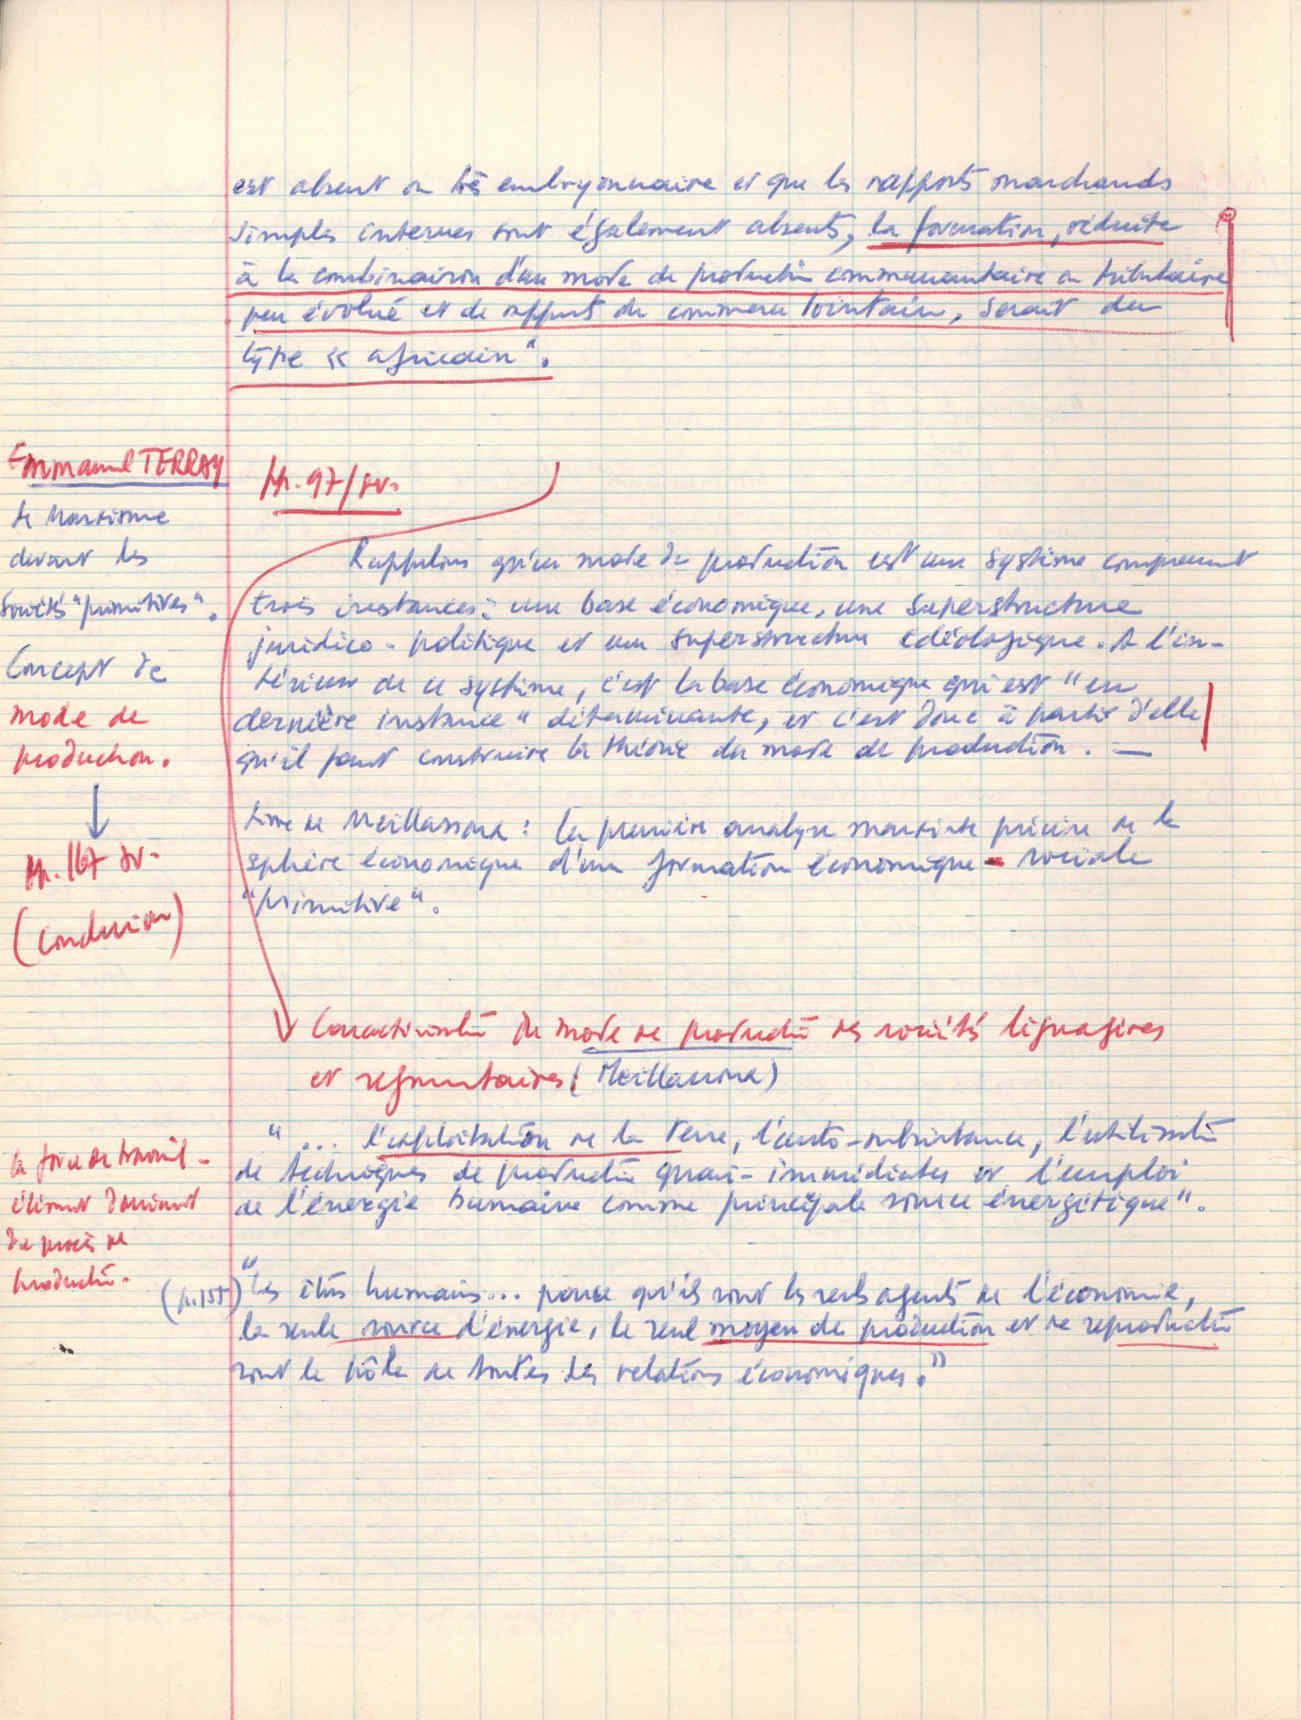 est absent ou très embryonnaire et que les rapports marchands
simples internes sont également absents, la formation, réduite
à la combinaison d'un mode de production communautaire ou tributaire
peu évolué et de rapports de commerce lointain, serait du
type « africain".
Emmanuel TERRAY
le Marxisme
devant les
Sociétés "primitives".
Concept de
mode de
production.
pp. 167 sv.
(Conclusion)
pp. 97/sv.
Rappelons qu'un mode de production est un système comprenant
trois instances: une base économique, une superstructure
juridico-politique et une superstructure idéologique. A l'in-
térieur de ce système, c'est la base économique qui est "en
dernière instance" déterminante, et c'est donc à partir d'elle
qu'il faut construire la théorie du mode de production. —
Livre de Meillassoux: la première analyse marxiste précise de la
sphère économique d'une formation économique - sociale
"primitive".
Caractéristiq du mode de productiō des sociétés lignagères
et segmentaires (Meillassoux)
"... l'exploitation de la terre, l'auto-subsistance, l'utilisatiō
de techniques de productiō quasi-immédiates et l'emploi
de l'énergie humaine comme principale source énergétique".
la force de travail -
élément dominant
du procès de
productiō.
(p.155) "les êtres humains... parce qu'ils sont les seuls agents de l'économie,
la seule source d'énergie, le seul moyen de production et de reproductiō
sont le pôle de toutes les relations économiques."